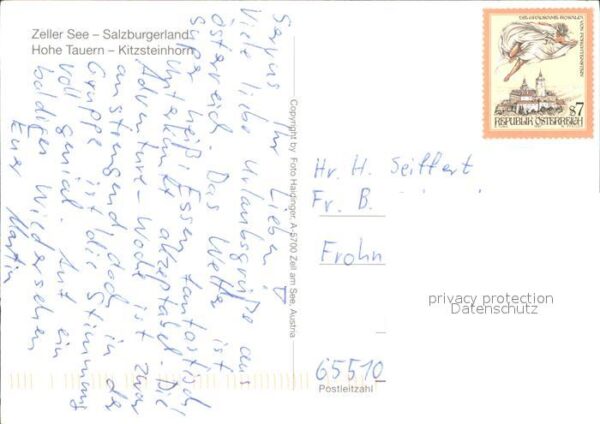 Zeller See – Salzburgerland
Hohe Tauern – Kitzsteinhorn
Servus Ihr Lieben!
Viele liebe Urlaubsgrüße aus
Österreich. Das Wetter ist
super heiß, Essen fantastisch
Unterkunft akzeptabel. Die
Adventure-Woche ist zwar
anstrengend, doch in der
Gruppe ist die Stimmung
voll genial. Auf ein
baldiges Wiedersehen
Euer Martin
Copyright by Foto Haidinger, A-5700 Zell am See, Austria
VON FORCHTENSTEIN
S7
REPUBLIK ÖSTERREICH
Hr. H. Seiffert
Fr. B.
Frohn
65510
Postleitzahl
privacy protection
Datenschutz